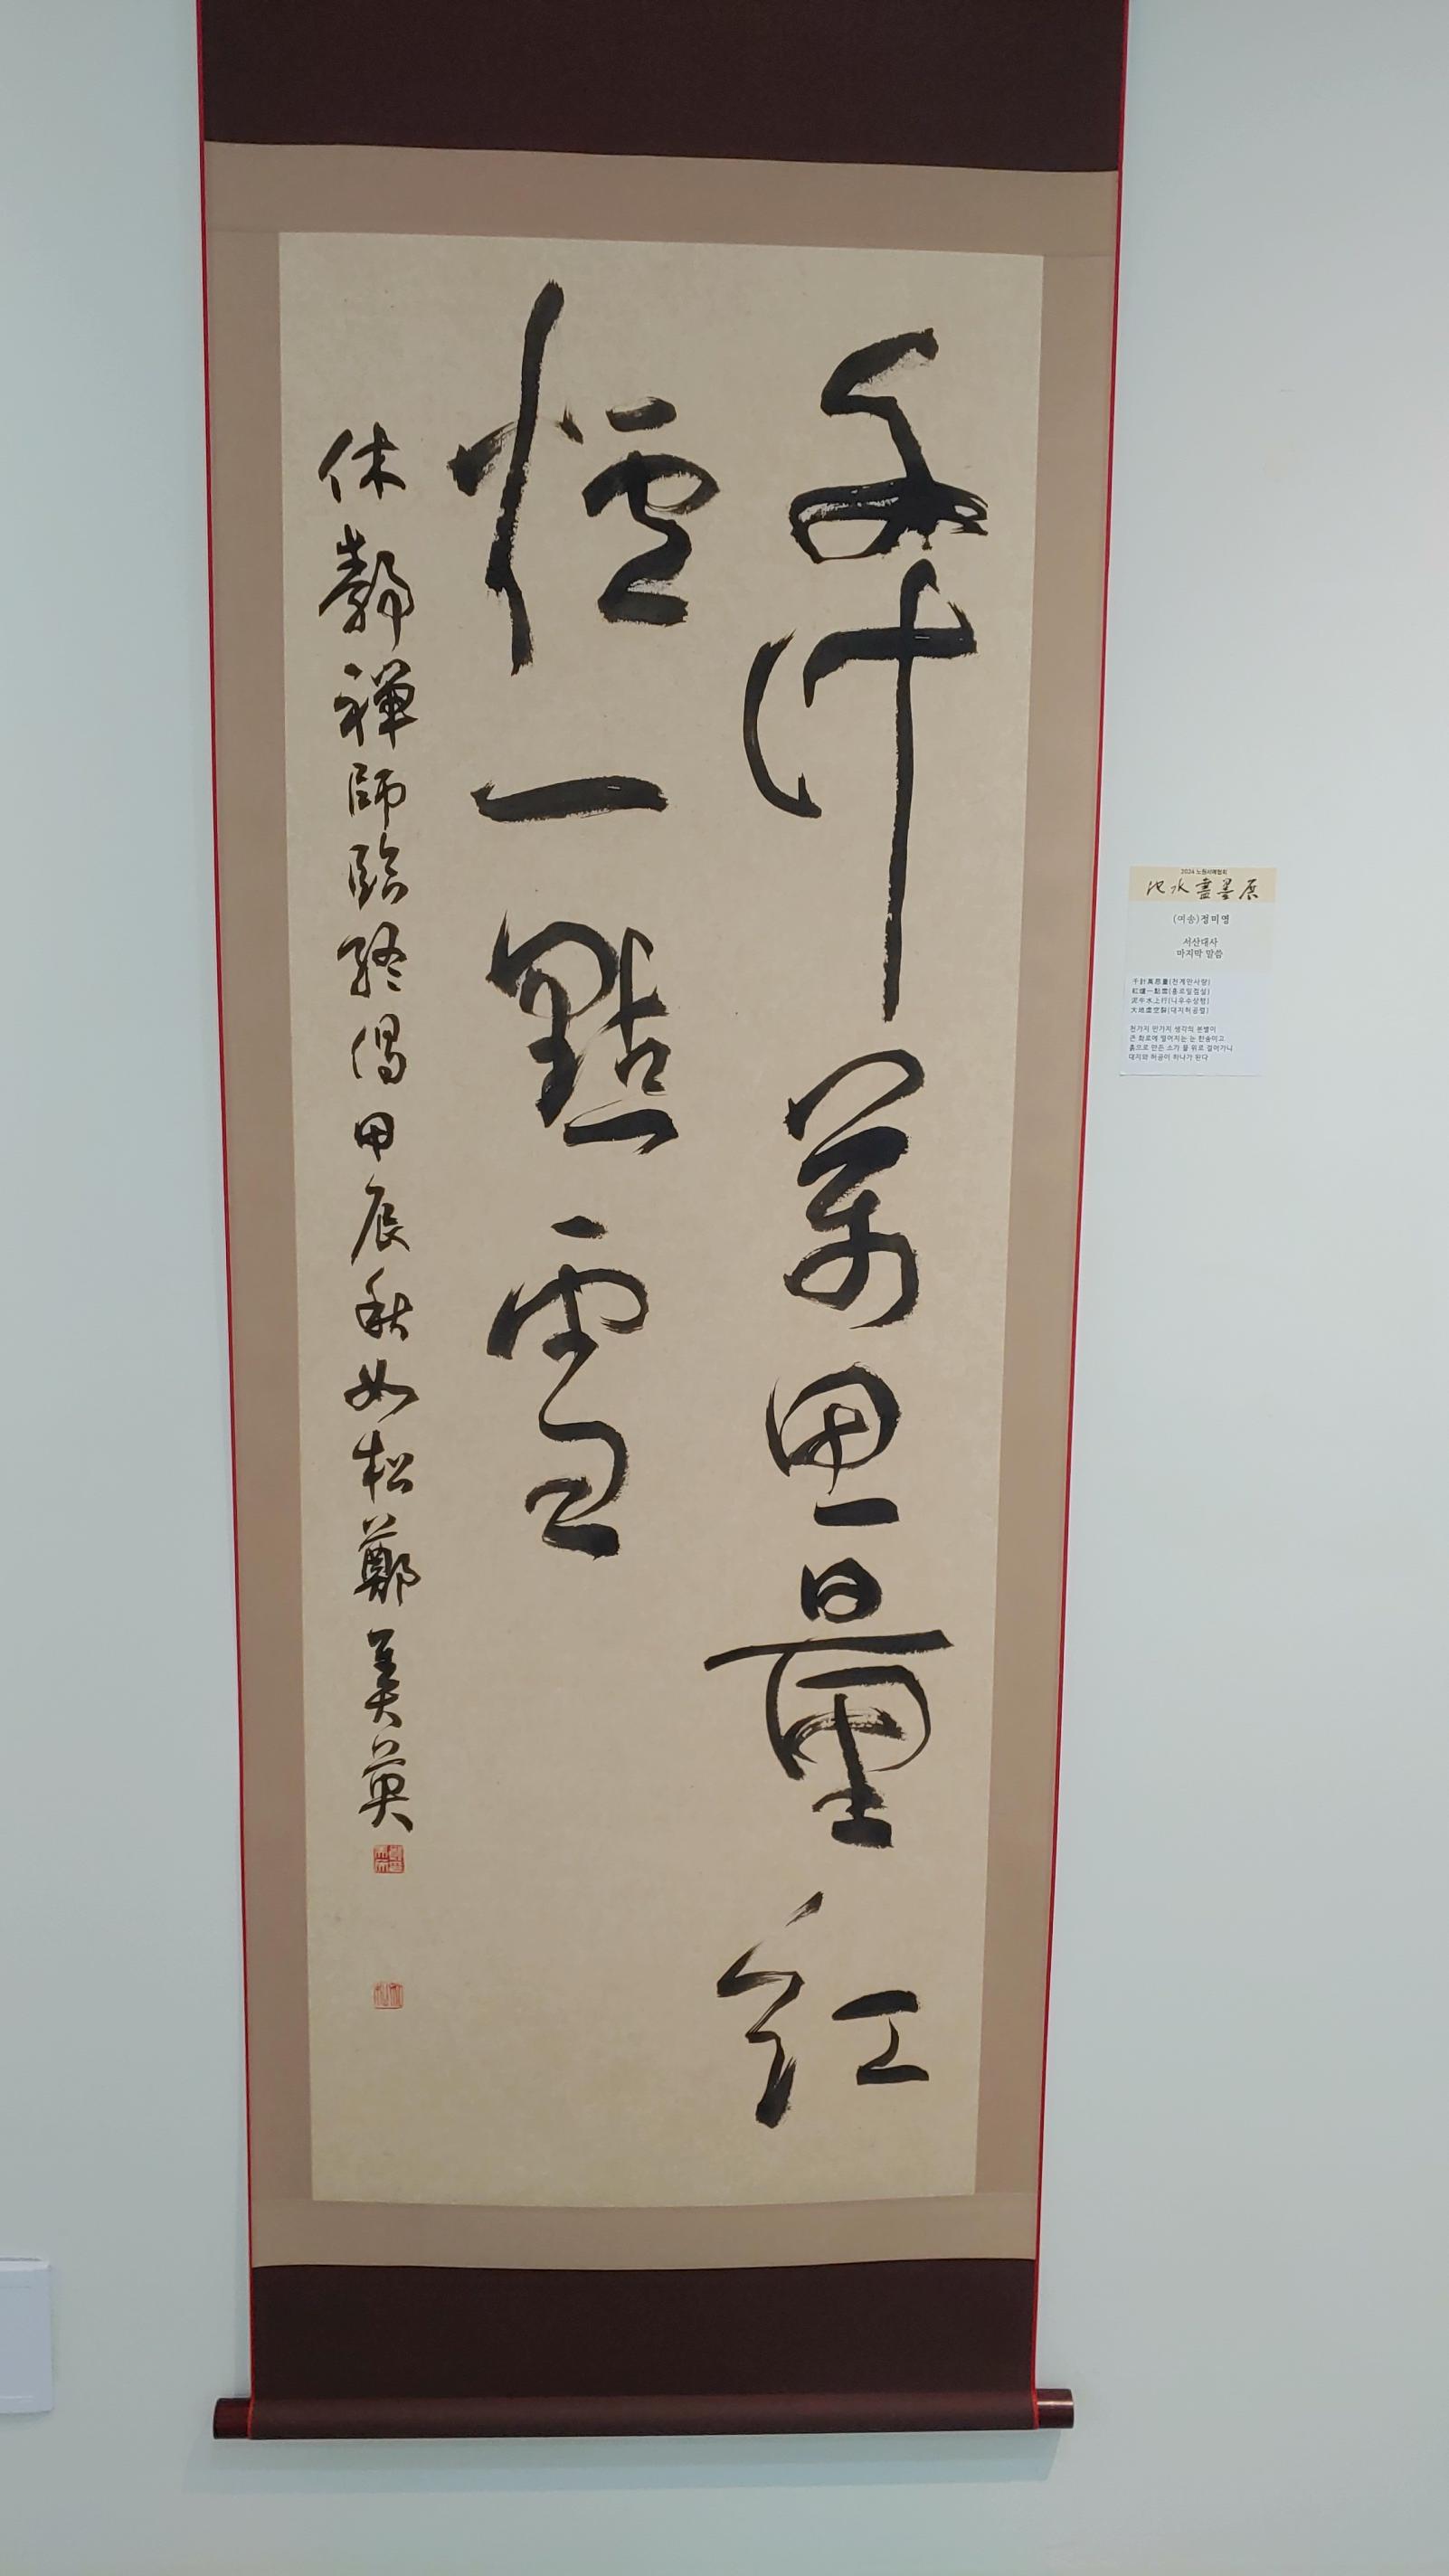 千計萬思量紅
爐一點雪
休靜禪師臨終偈甲辰秋如松鄭美英
2024 노원서예협회
池水盡墨展
(여송)정미영
서산대사
마지막 말씀
千計萬思量(천계만사량)
紅爐一點雪(홍로일점설)
泥牛水上行(니우수상행)
大地虛空裂(대지허공렬)
천가지 만가지 생각의 분별이
큰 화로에 떨어지는 눈 한송이고
흙으로 만든 소가 물 위로 걸어가니
대지와 허공이 하나가 된다